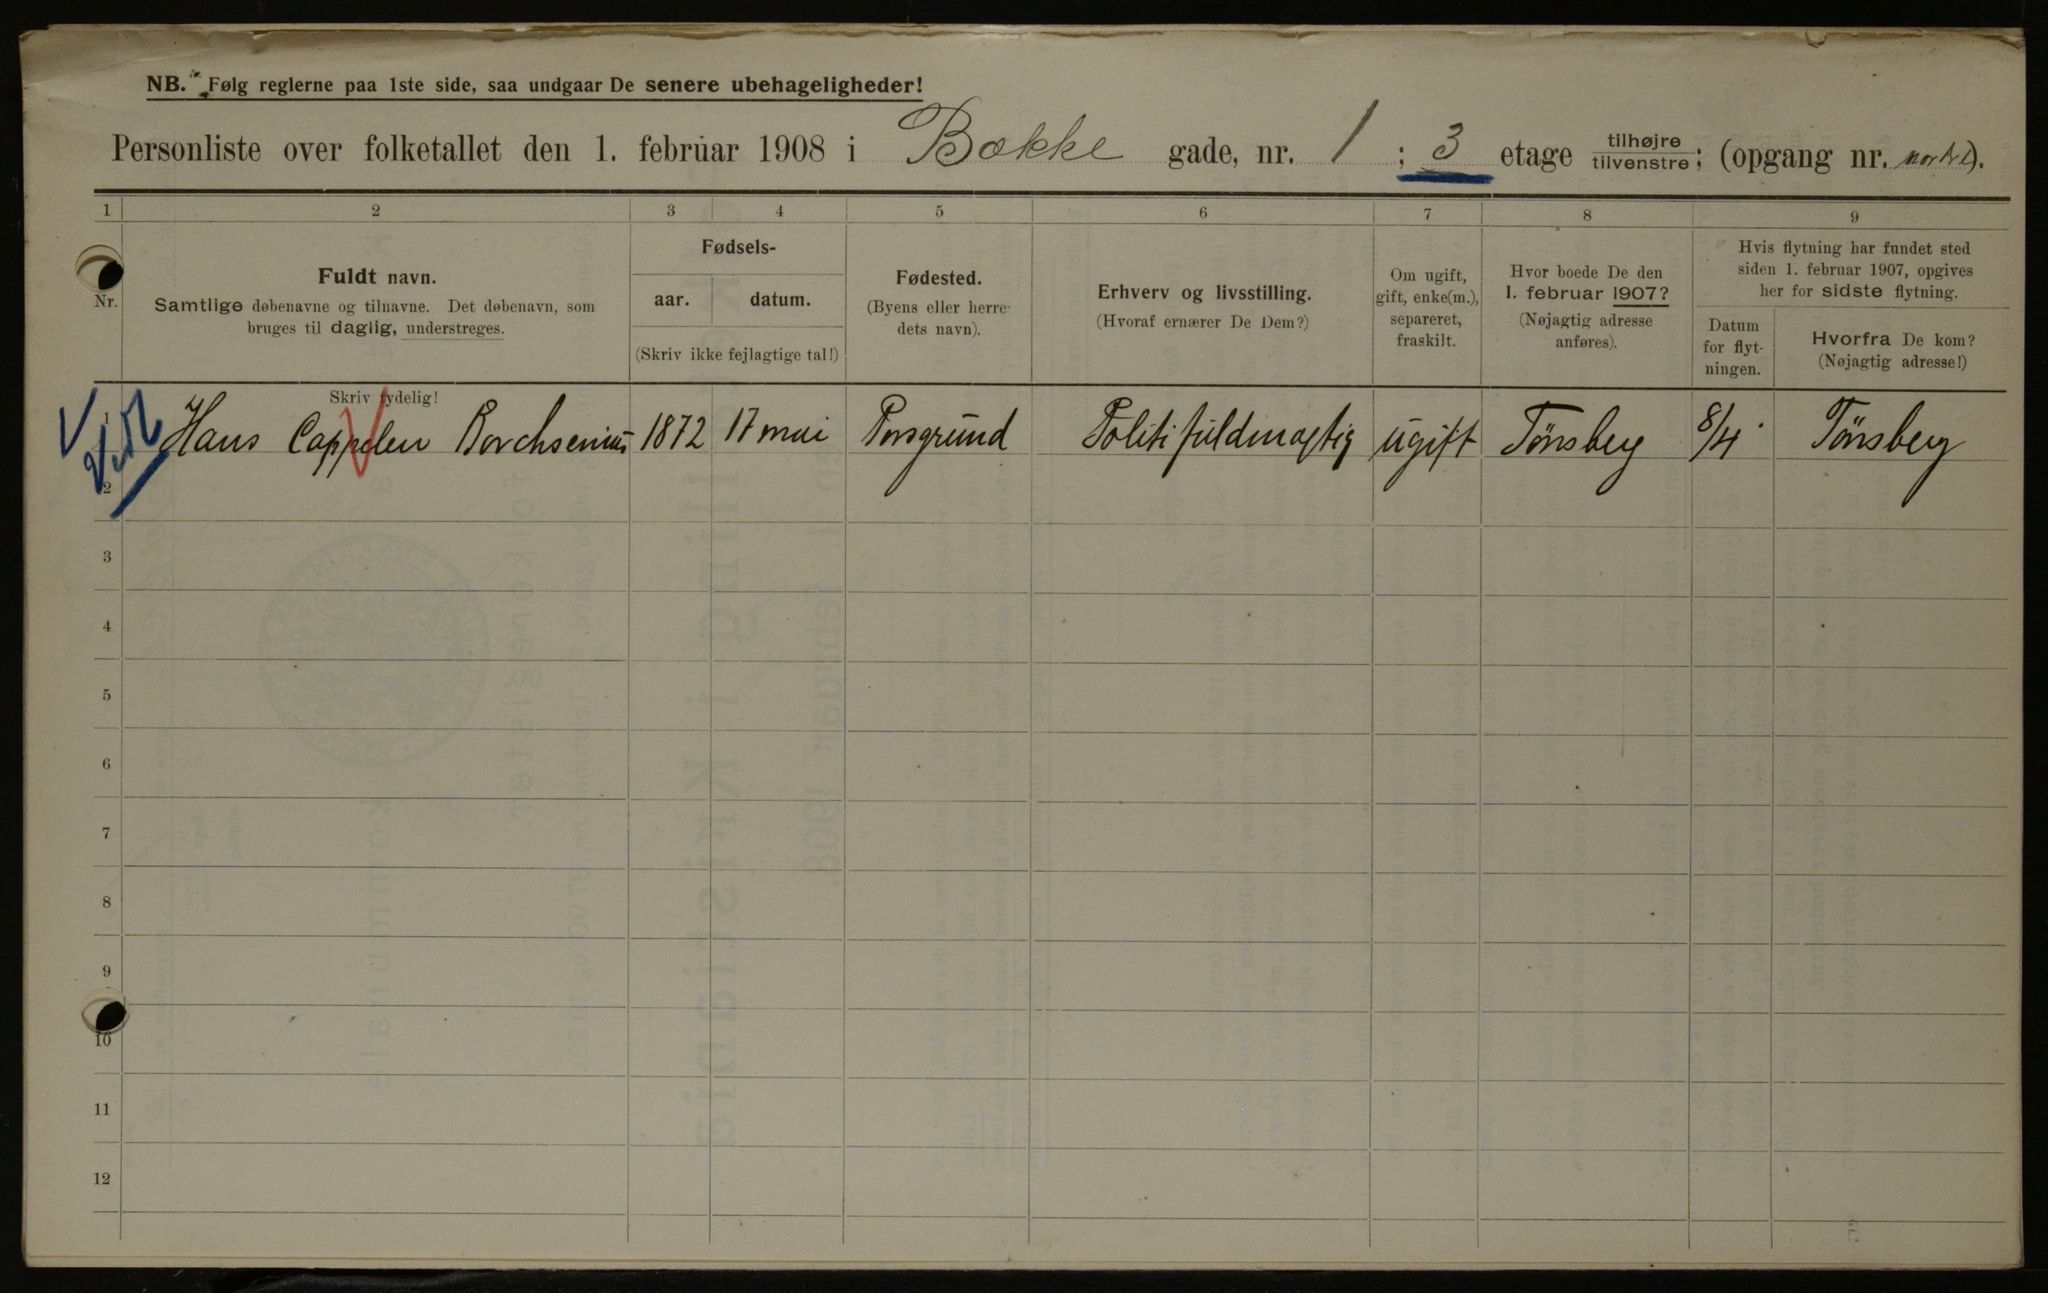 NB. Følg reglerne paa 1ste side, saa undgaar De senere ubehageligheder!
Personliste over folketallet den 1. februar 1908 i Bakke gade, nr. 1 ; 3 etage tilhøjre tilvenstre; (opgang nr. ).
1 2 3 4 5 6 7 8 9
Nr.
Fuldt navn.
Samtlige døbenavne og tilnavne. Det døbenavn, som
bruges til daglig, understreges.
Skriv tydelig!
Fødsels-
aar. datum.
(Skriv ikke fejlagtige tal!)
Fødested.
(Byens eller herre-
dets navn).
Erhverv og livsstilling.
(Hvoraf ernærer De Dem?)
Om ugift,
gift, enke(m.),
separeret,
fraskilt.
Hvor boede De den
1. februar 1907?
(Nøjagtig adresse
anføres).
Hvis flytning har fundet sted
siden 1. februar 1907, opgives
her for sidste flytning.
Datum
for flyt-
ningen.
Hvorfra De kom?
(Nøjagtig adresse!)
1 Hans Cappelen Borchsenius 1872 17 mai Porsgrund Politifuldmægtig ugift Tønsberg 8/4 Tønsberg
2
3
4
5
6
7
8
9
10
11
12